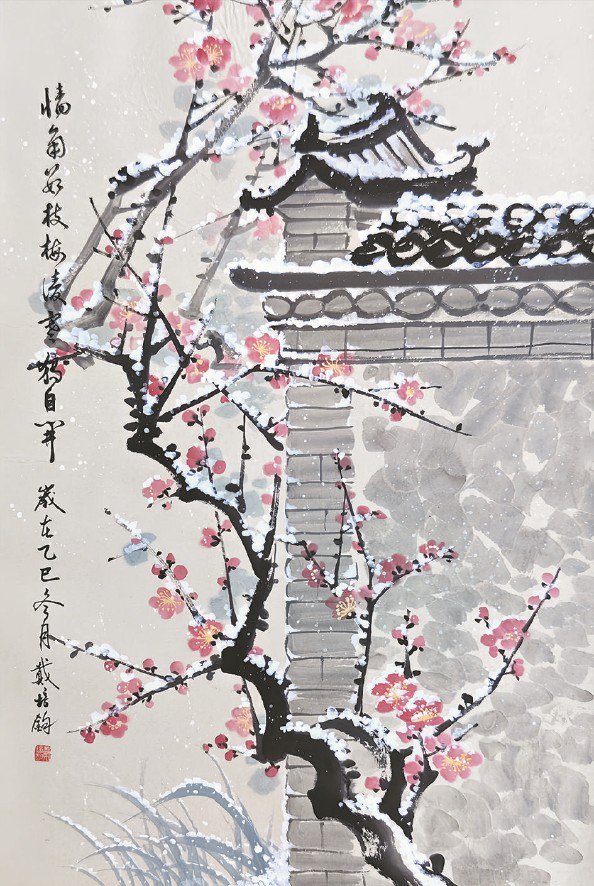 墙角数枝梅凌寒独自开 歲在乙巳冬月戴培钧